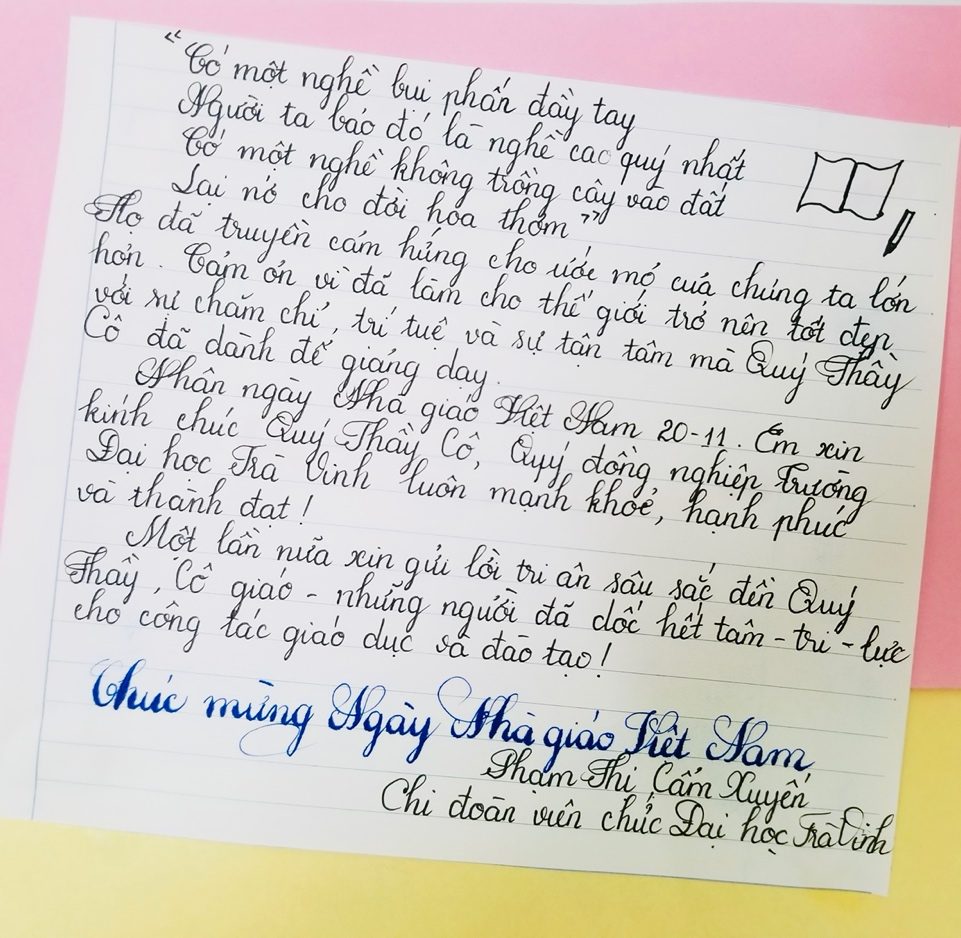 "Có một nghề bụi phấn đầy tay
Người ta bảo đó là nghề cao quý nhất
Có một nghề không trồng cây vào đất
Lại nở cho đời hoa thơm"
Họ đã truyền cảm hứng cho ước mơ của chúng ta lớn
hơn. Cảm ơn vì đã làm cho thế giới trở nên tốt đẹp
với sự chăm chỉ, trí tuệ và sự tận tâm mà Quý Thầy
Cô đã dành để giảng dạy.
Nhân ngày Nhà giáo Việt Nam 20-11. Em xin
kính chúc Quý Thầy Cô, Quý đồng nghiệp Trường
Đại học Trà Vinh luôn mạnh khoẻ, hạnh phúc
và thành đạt!
Một lần nữa xin gửi lời tri ân sâu sắc đến Quý
Thầy, Cô giáo - những người đã dốc hết tâm - trí - lực
cho công tác giáo dục và đào tạo!
Chúc mừng Ngày Nhà giáo Việt Nam
Phạm Thị Cẩm Xuyến
Chi đoàn viên chức Đại học Trà Vinh